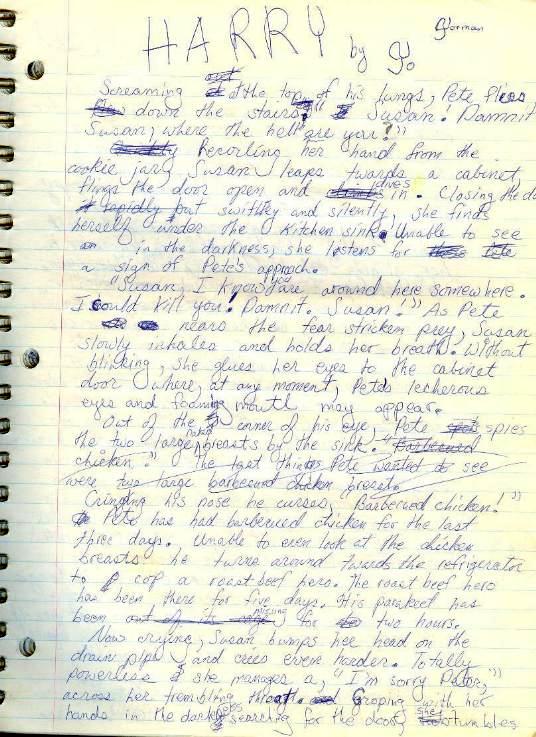 HARRY by Jo
Jorman
Screaming at the top of his lungs, Pete flies
down the stairs. "Susan! Damnit
Susan, where the hell are you?"
Recoiling her hand from the
cookie jar, Susan leaps twards a cabinet,
flings the door open and dives in. Closing the do
rapidly but swiftley and silently, she finds
herself under the kitchen sink. Unable to see
in the darkness, she listens for
a sign of Pete's approach.
"Susan, I know you are around here somewhere.
I could kill you! Damnit, Susan!" As Pete
nears the fear stricken prey, Susan
slowly inhales and holds her breath. Without
blinking, she glues her eyes to the cabinet
door where, at any moment, Pete's lecherous
eyes and foaming mouth may appear.
Out of the corner of his eye, Pete spies
the two large naked breasts by the sink. "Barbecued
chicken." The last thing Pete wanted to see
were two large barbecued chicken breast.
Cringing his nose he curses, Barbecued chicken!"
Pete has had barbecued chicken for the last
three days. Unable to even look at the chicken
breasts he turns around twards the refrigirator
to cop a roast beef hero. The roast beef hero
has been there for five days. His parakeet has
been out of its cage missing for two hours.
Now crying, Susan bumps her head on the
drain pipe and cries even harder. Totally
powerless she manages a, "I'm sorry Pater,"
across her trembling throat. Groping with her
hands in the dark, searching for the door, she tumbles